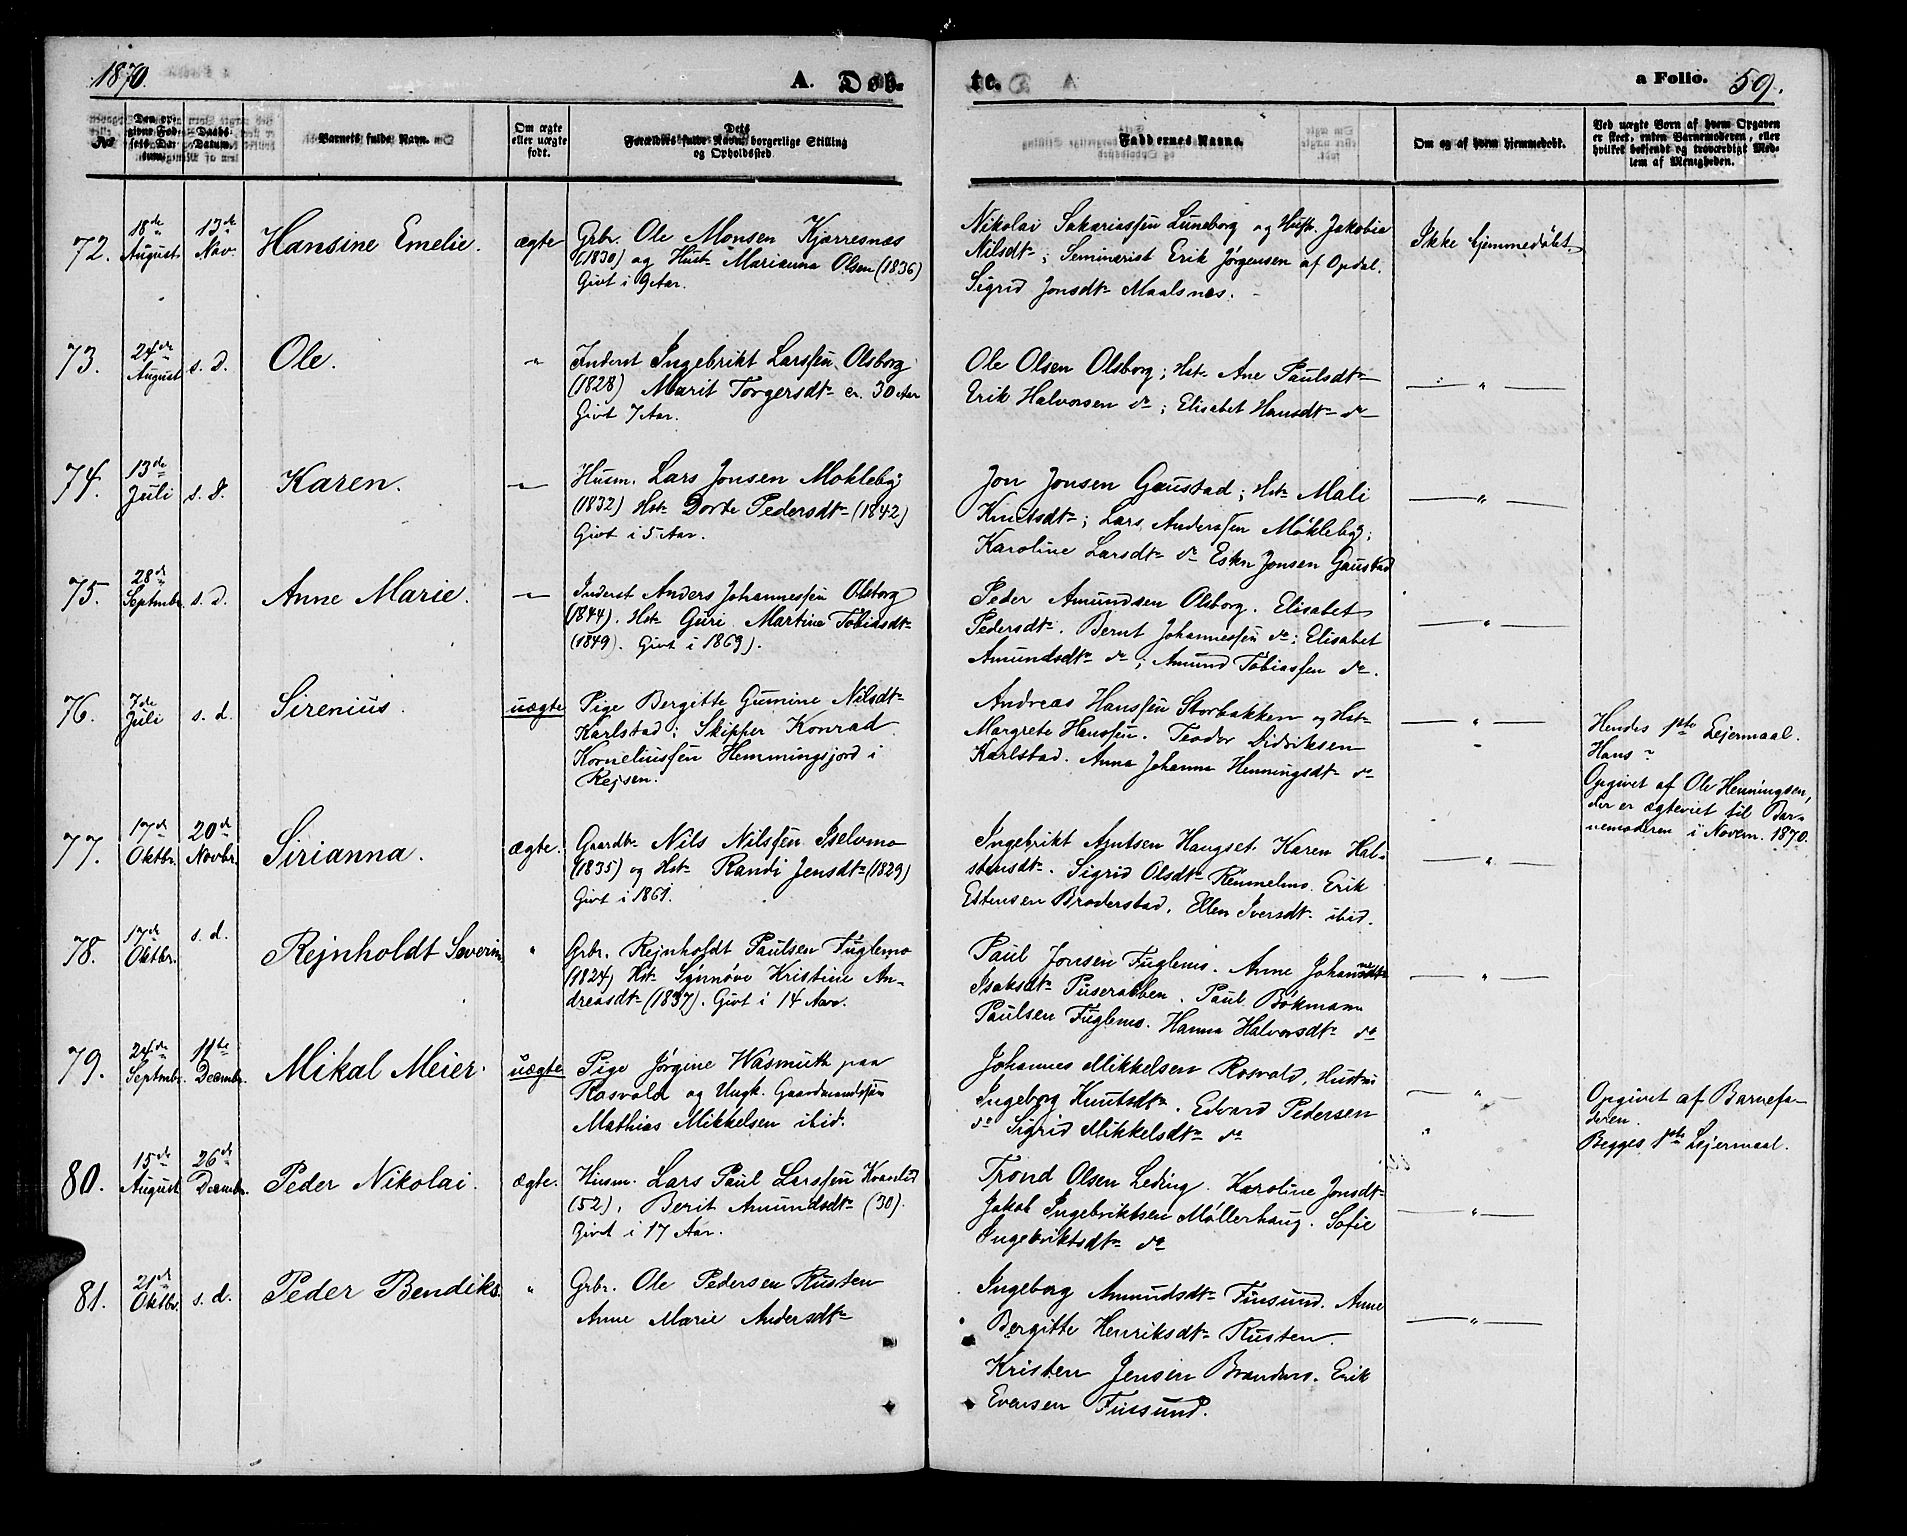 1870.
A. Døb-
te.
a Folio. 59.
No.
Den op-
givne Fød-
sels Da-
tum.
Daabs
Datum.
Barnets fulde Navn.
Om ægte
eller uægte
født.
Dets
Forældres fulde Navn, borgerlige Stilling
og Opholdssted.
Faddernes Navne.
Om og af hvem hjemmedøbt.
Ved uægte Børn af hvem Opgaven
er skeet, enten Barnemoderen, eller
hvilket bekjendt og troværdigt Med-
lem af Menigheden.
72. 18de August. 13de Nov. Hansine Emelie. ægte
Grbr. Ole Monsen Kjærresnæs
(1830) og Hust. Marianna Olsen (1836)
Givt i 9 Aar.
Nikolai Sakariassen Luneborg og Hustr. Jakobia
Nilsdtr; Seminarist Erik Jørgensen af Opdal.
Sigrid Jonsdtr Maalsnes.
Ikke hjemmedøbt.
73. 24de August s. D. Ole. "
Inderst Ingebrikt Larssen Olsborg
(1828) Marit Torgersdtr er 30 Aar
Givt 7 Aar.
Ole Olsen Olsborg; Hstr Ane Paulsdtr
Erik Halvorsen do; Elisabet Hansdtr do
— " —
74. 13de Juli s. d. Karen. "
Husm. Lars Jonsen Mokleby
(1832) Hstr Dorte Pedersdtr (1842)
Givt i 5 Aar.
Jon Jonsen Gaustad; Hstr Mali
Knutsdtr; Lars Anderssen Møkleby;
Karoline Larsdtr do Esten Jonsen Gaustad
— " —
75. 28de Septmbr. s. d. Anne Marie. "
Inderst Anders Johannessen Olsborg
(1844). Hstr Guri Martina Tobiasdtr
(1849). Givt i 1869).
Peder Amundsen Olsborg. Elisabet
Pedersdtr. Bernt Johannessen do; Elisabet
Amundsdtr do; Amund Tobiassen do.
— " —
76. 7de Juli s. d. Sirenius. uægte
Pige Bergitte Gumine Nilsdtr
Karlstad; Skipper Konrad
Korneliussen Hemmingsjord i
Rejsen.
Andreas Hanssen Storbakken og Hstr
Margrete Hanssen. Teodor Didriksen
Karlstad. Anna Johanna Henningsdtr do
— " —
Hendes 1ste Lejermaal.
Hans ?
Opgivet af Ole Henningsen,
der er ægteviet til Bar-
nemoderen i Novem. 1870.
77. 17de Oktbr. 20de Novbr. Sirianna. ægte.
Gaardbr. Nils Nilssen Iselvmo
(1835) og Hstr Randi Jensdtr (1829)
Givt i 1861.
Ingebrikt Arntsen Haugset. Karen Hal-
stensdtr. Sigrid Olsdtr Remmelmo. Erik
Estensen Broderstad. Ellen Iversdtr ibid.
— " —
78. 17de Oktbr. s. d. Rejnholdt Severin "
Grbr. Rejnholdt Paulsen Fuglemo
(1824) Hstr Synnøve Kristine An-
dreasdtr (1837). Givt i 14 Aar.
Paul Jonsen Fuglemo. Anne Johannesdtr
Isaksdtr Puserabben. Paul Bokmann
Paulsen Fuglemo. Hanna Halvorsdtr do
— " —
79. 24de Septmbr. 11te Decmbr. Mikal Meier. uægte
Pige Jørgine Wasmuth paa
Rosvold og Ungk. Gaardmandssøn
Mathias Mikkelsen ibid.
Johannes Mikkelsen Rosvold, Hustru
Ingeborg Knutsdtr. Edvard Pedersen
do Sigrid Mikkelsdtr do
— " —
Opgivet af Barnefa-
deren.
Begges 1ste Lejermaal.
80. 15de August 26de Decmbr. Peder Nikolai. ægte.
Husm. Lars Paul Larssen Kvanlid
(52). Berit Amundsdtr (30).
Givt i 17 Aar.
Trond Olsen Leding. Karoline Jonsdtr
Jakob Ingebriktsen Møllerhaug. Sofie
Ingebriktsdtr do
— " —
81. 21de Oktbr. s. d. Peder Bendiks. "
Grbr. Ole Pedersen Rusten
Anne Marie Andersdtr
Ingeborg Amundsdtr Finsund. Anne
Bergitte Henriksdtr Rusten.
Kristen Jensen Brandmo. Erik
Evensen Finsund.
— " —